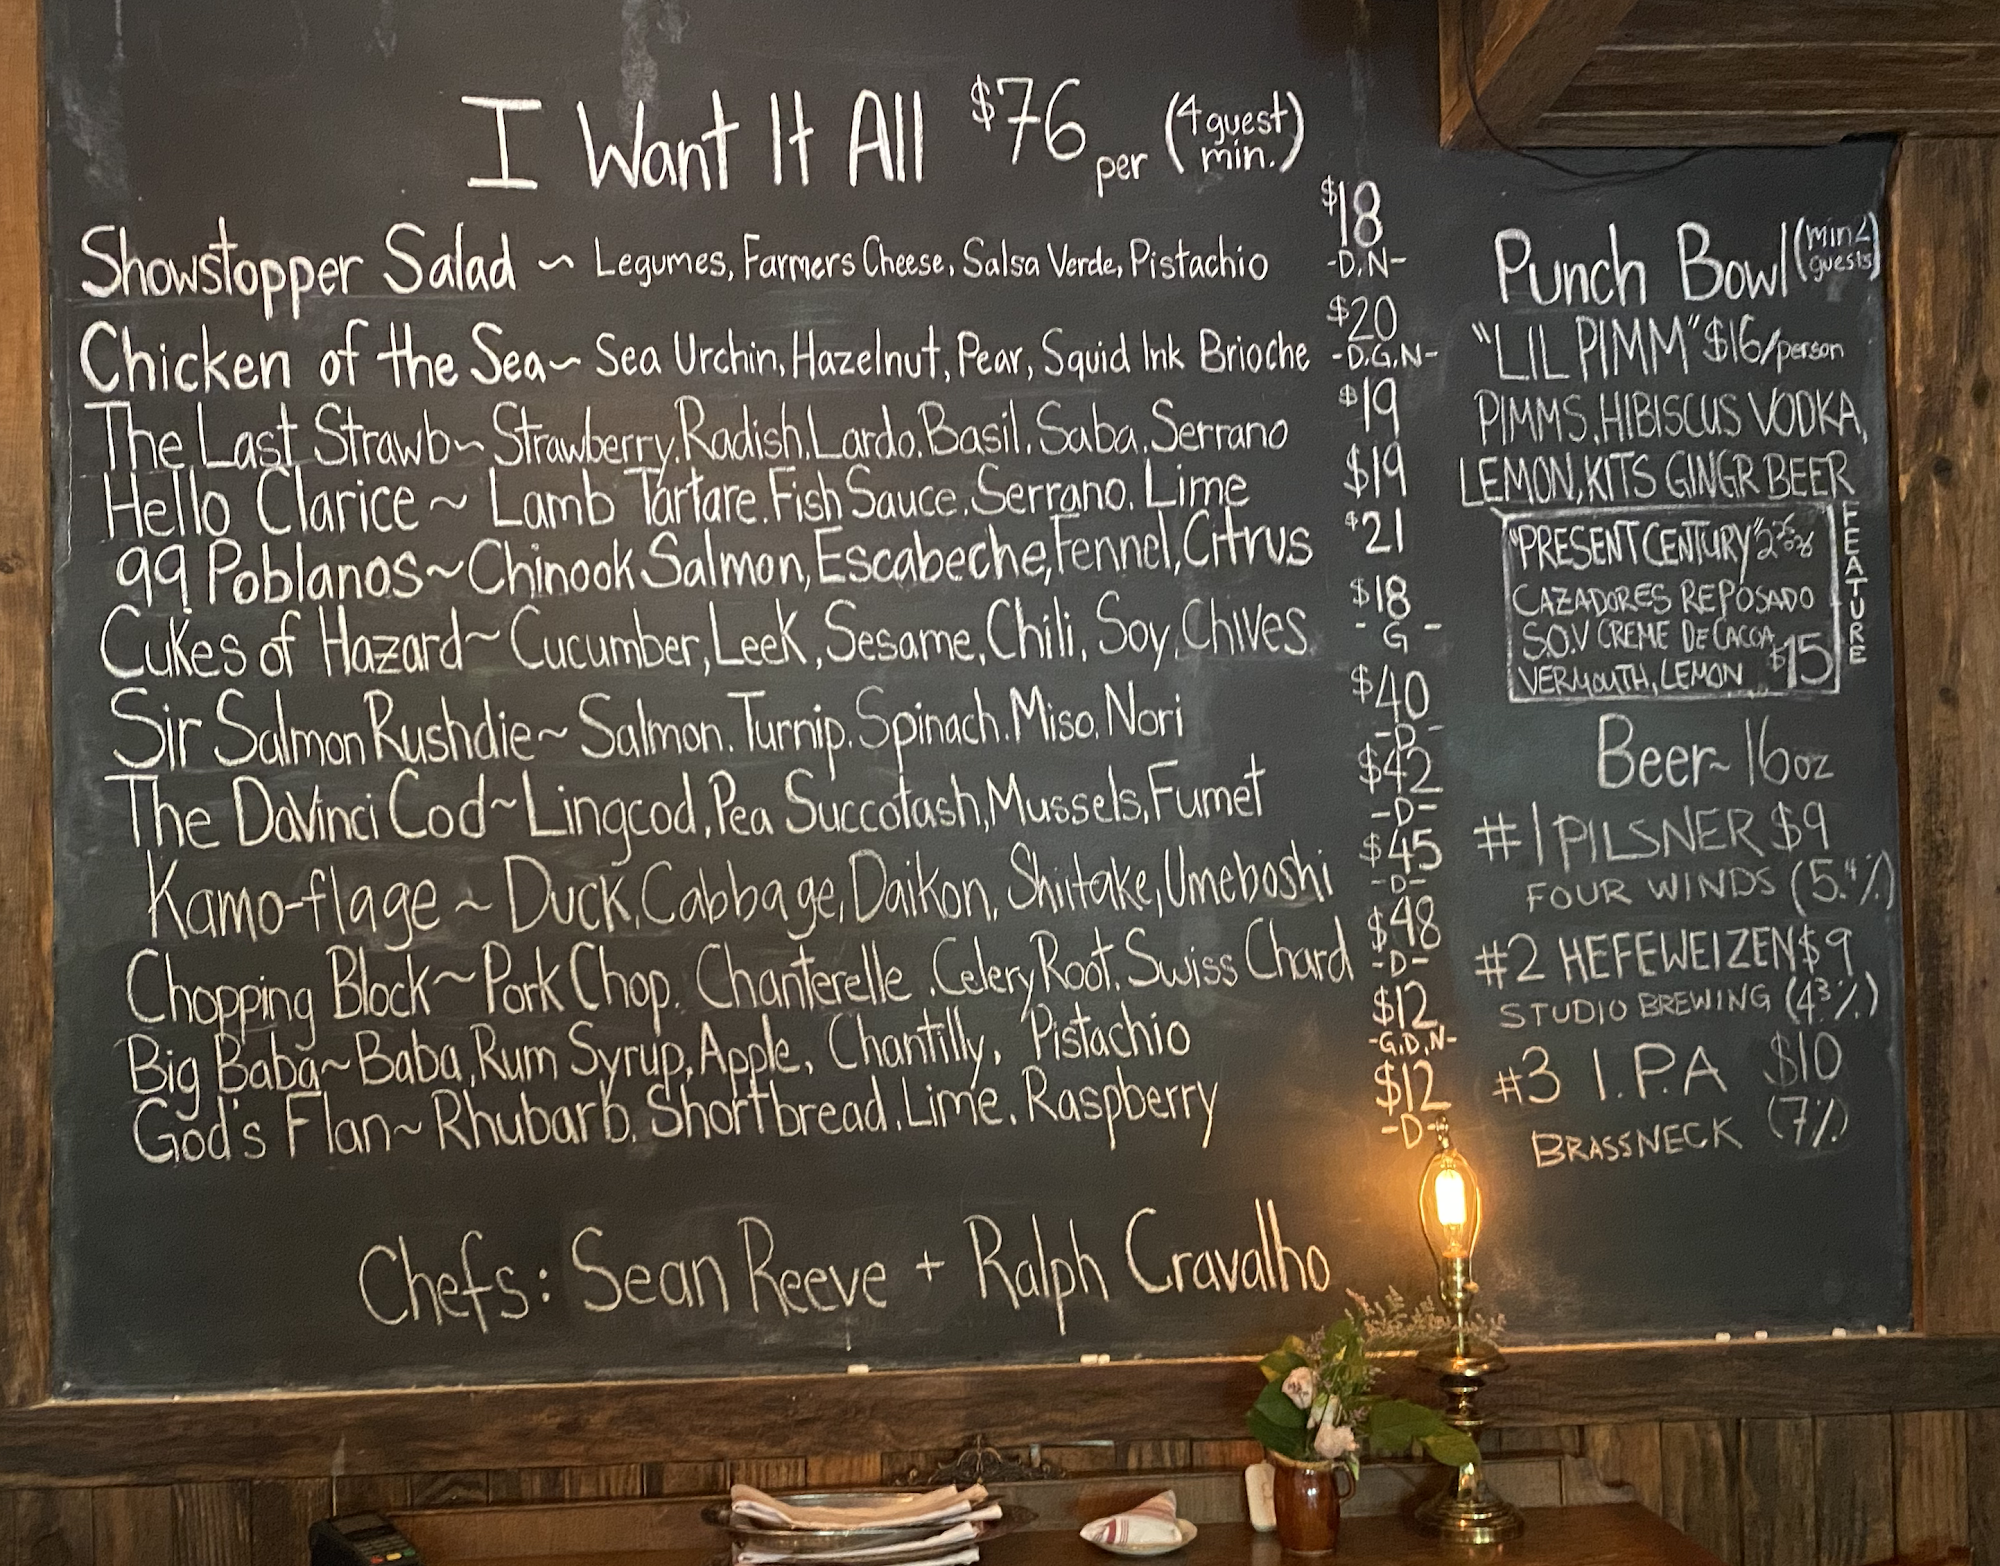 I Want It All $76 per (4 guest min.)
Showstopper Salad ~ Legumes, Farmers Cheese, Salsa Verde, Pistachio $18
-D,N-
Chicken of the Sea~ Sea Urchin, Hazelnut, Pear, Squid Ink Brioche $20
-D,G,N-
The Last Strawb~ Strawberry, Radish, Lardo, Basil, Saba, Serrano $19
Hello Clarice ~ Lamb Tartare, Fish Sauce, Serrano, Lime $19
99 Poblanos~Chinook Salmon, Escabeche, Fennel, Citrus $21
Cukes of Hazard~ Cucumber, Leek, Sesame, Chili, Soy, Chives $18
- G -
Sir Salmon Rushdie~ Salmon, Turnip, Spinach, Miso, Nori $40
-D-
The DaVinci Cod~Lingcod, Pea Succotash, Mussels, Fumet $42
-D-
Kamo-flage ~ Duck, Cabbage, Daikon, Shiitake, Umeboshi $45
-D-
Chopping Block~ Pork Chop, Chanterelle, Celery Root, Swiss Chard $48
-D-
Big Baba~ Baba, Rum Syrup, Apple, Chantilly, Pistachio $12
-G,D,N-
God's Flan~ Rhubarb, Shortbread, Lime, Raspberry $12
-D-
Chefs: Sean Reeve + Ralph Cravalho
Punch Bowl (min 2 guests)
"LIL PIMM" $16/person
PIMMS, HIBISCUS VODKA,
LEMON, KITS GINGR BEER
FEATURE
"PRESENT CENTURY"
CAZADORES REPOSADO
S.O.V CREME DE CACOA,
VERMOUTH, LEMON $15
Beer~ 16oz
#1 PILSNER $9
FOUR WINDS (5.4%)
#2 HEFEWEIZEN $9
STUDIO BREWING (4.3%)
#3 I.P.A $10
BRASSNECK (7%)